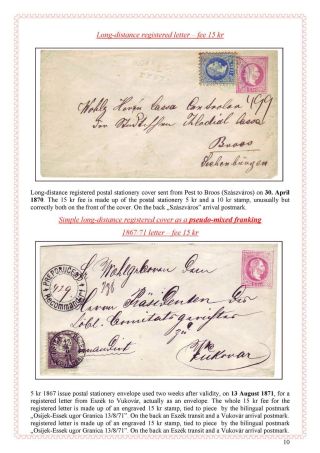 Long-distance registered letter – fee 15 kr
499
Wohlg Herrn Cassa Controlor
der Städtischen
Broos
Siebenbürgen
Long-distance registered postal stationery cover sent from Pest to Broos (Szászváros) on 30. April
1870. The 15 kr fee is made up of the postal stationery 5 kr and a 10 kr stamp, unusually but
correctly both on the front of the cover. On the back „Szászváros” arrival postmark.
Simple long-distance registered cover as a pseudo-mixed franking
1867/71 letter – fee 15 kr
PREPORUČENO
Recommandirt
429
Wohlgeboren dem
Herrn Präsidenten des
Löbl. Comitatsgerichtes
zu
Vukovar
5 kr 1867 issue postal stationery envelope used two weeks after validity, on 13 August 1871, for a
registered letter from Eszék to Vukovár, actually as an envelope. The whole 15 kr fee for the
registered letter is made up of an engraved 15 kr stamp, tied to piece by the bilingual postmark
„Osijek-Essek ugor Granica 13/8/71” On the back an Eszék transit and a Vukovár arrival postmark.
registered letter is made up of an engraved 15 kr stamp, tied to piece by the bilingual postmark
„Osijek-Essek ugor Granica 13/8/71”. On the back an Eszék transit and a Vukovár arrival postmark.
10